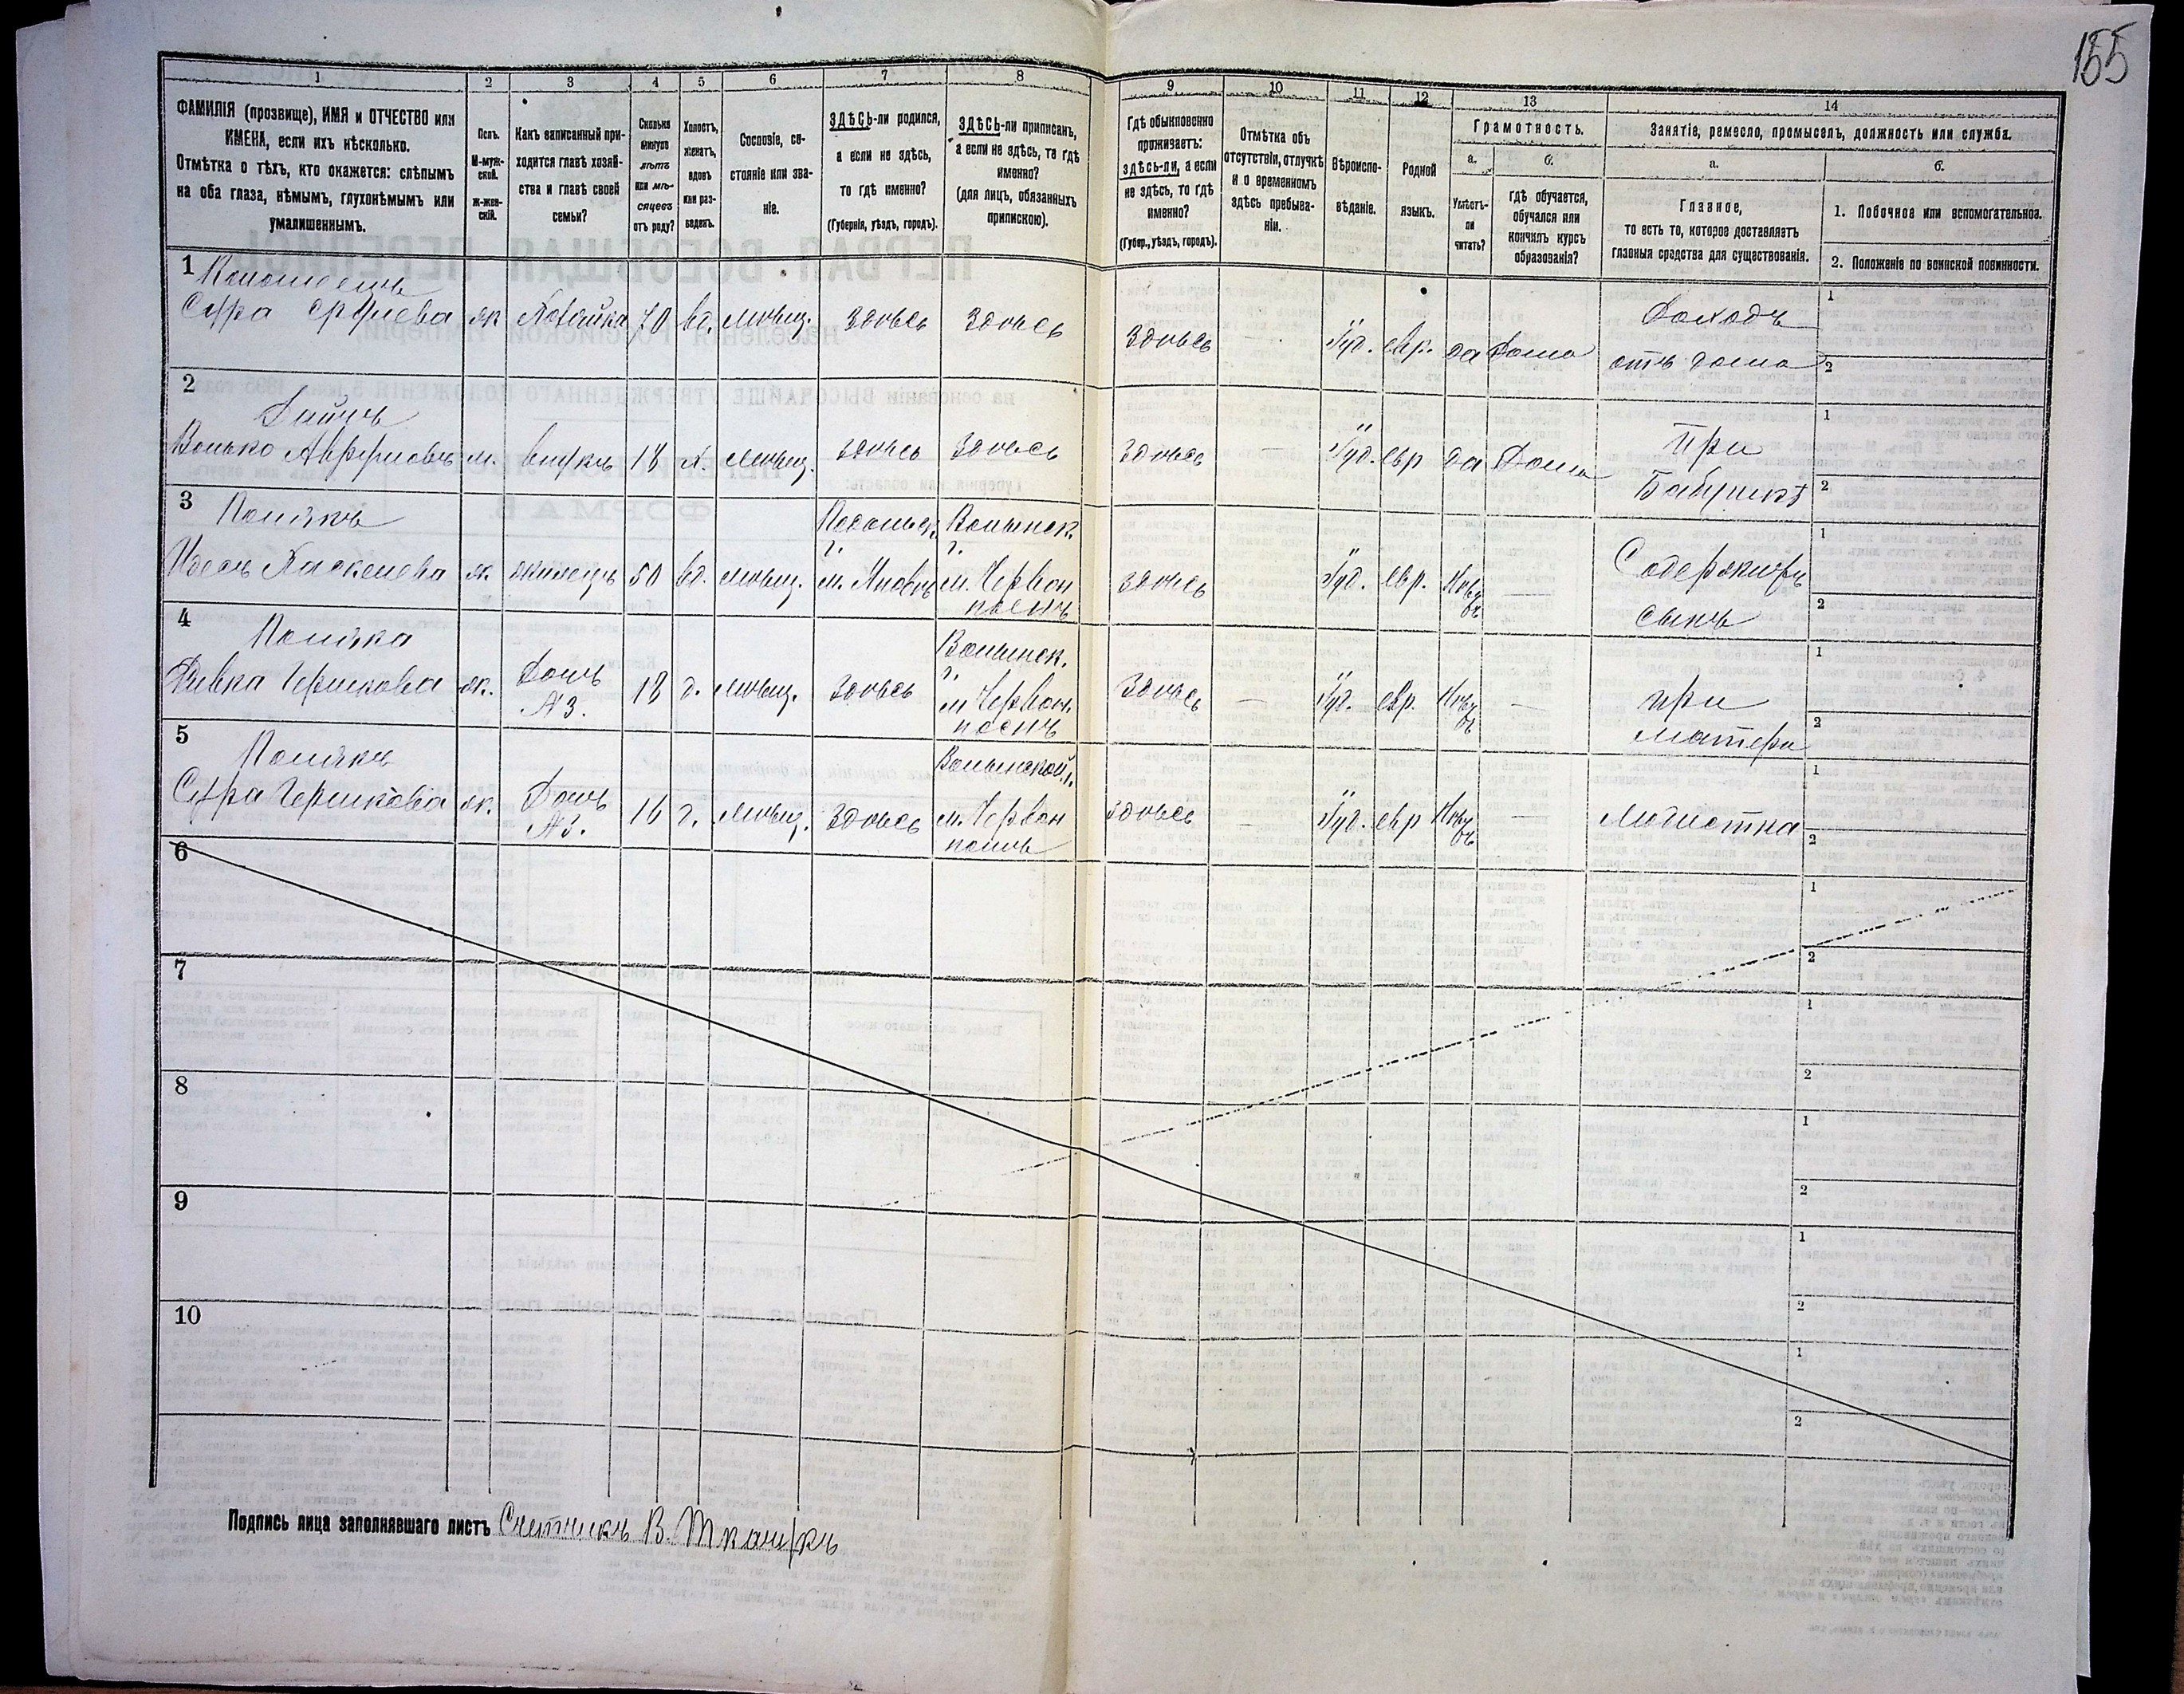 155
1 2 3 4 5 6 7 8 9 10 11 12 13 14
ФАМИЛІЯ (прозвище), ИМЯ и ОТЧЕСТВО или
ИМЕНА, если ихъ нѣсколько.
Отмѣтка о тѣхъ, кто окажется: слѣпымъ
на оба глаза, нѣмымъ, глухонѣмымъ или
умалишеннымъ.
Полъ.
М-муж-
ской.
ж-жен-
скій.
Какъ записанный при-
ходится главѣ хозяй-
ства и главѣ своей
семьи?
Сколько
минуло
лѣтъ
или мѣ-
сяцевъ
отъ роду?
Холостъ,
женатъ,
вдовъ
или раз-
веденъ.
Сословіе, со-
стояніе или зва-
ніе.
ЗДѢСЬ-ли родился,
а если не здѣсь,
то гдѣ именно?
(Губернія, уѣздъ, городъ).
ЗДѢСЬ-ли приписанъ,
а если не здѣсь, то гдѣ
именно?
(для лицъ, обязанныхъ
припискою).
Гдѣ обыкновенно
проживаетъ:
здѣсь-ли, а если
не здѣсь, то гдѣ
именно?
(Губер., уѣздъ, городъ).
Отмѣтка объ
отсутствіи, отлучкѣ
и о временномъ
здѣсь пребыва-
ніи.
Вѣроиспо-
вѣданіе.
Родной
языкъ.
Грамотность.
а. б.
Умѣетъ-
ли
читать?
Гдѣ обучается,
обучался или
кончилъ курсъ
образованія?
Занятіе, ремесло, промыселъ, должность или служба.
а. б.
Главное,
то есть то, которое доставляетъ
главныя средства для существованія.
1. Побочное или вспомогательное.
2. Положеніе по воинской повинности.
1
Сура Срулева ж Хозяйка 70 вд. мѣщ. здѣсь здѣсь здѣсь — Іуд. евр. да Дома
Доходъ
отъ дома
1
2
2
Волько м. внукъ 18 х. мѣщ. здѣсь здѣсь здѣсь — Іуд. евр да Дома
при
Бабушкѣ
1
2
3 Полякъ
Хаскелева ж. жилецъ 50 вд. мѣщ.
Подольск.
г.
м. Яновъ
Волынск.
г.
м. Червон
здѣсь Іуд. евр. —
Содержитъ
сынъ
1
2
4 Поляка
Ривка Гершкова ж. Дочь 18 д. мѣщ. здѣсь
№3.
Волынск.
г.
м Червон.
здѣсь — Іуд. евр. —
при
матери
1
2
5 Полякъ
Сура Гершкова ж. Дочь 16 д. мѣщ. здѣсь
№3.
Волынской г.
м. Червон
здѣсь — Іуд. евр —
модистка
1
2
6
1
2
7
1
2
8
1
2
9
1
2
10
1
2
Подпись лица заполнявшаго листъ Счетчикъ В.